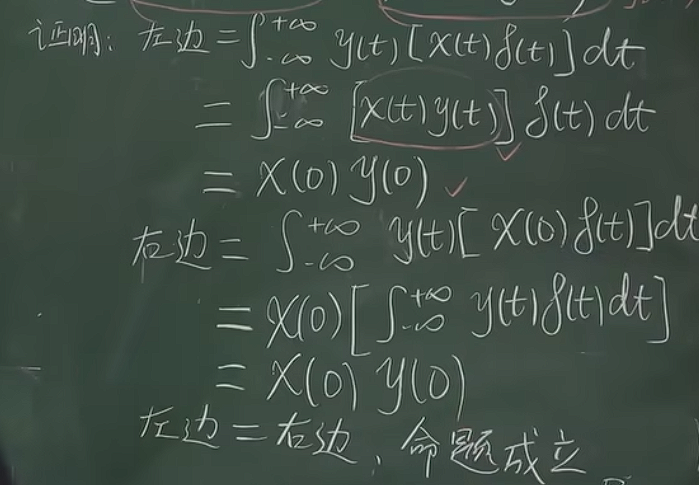 证明: 左边 = ∫_{-∞}^{+∞} y(t) [x(t) δ(t)] dt
= ∫_{-∞}^{+∞} [x(t) y(t)] δ(t) dt
= x(0) y(0)
右边 = ∫_{-∞}^{+∞} y(t) [x(0) δ(t)] dt
= x(0) [∫_{-∞}^{+∞} y(t) δ(t) dt]
= x(0) y(0)
左边 = 右边, 命题成立